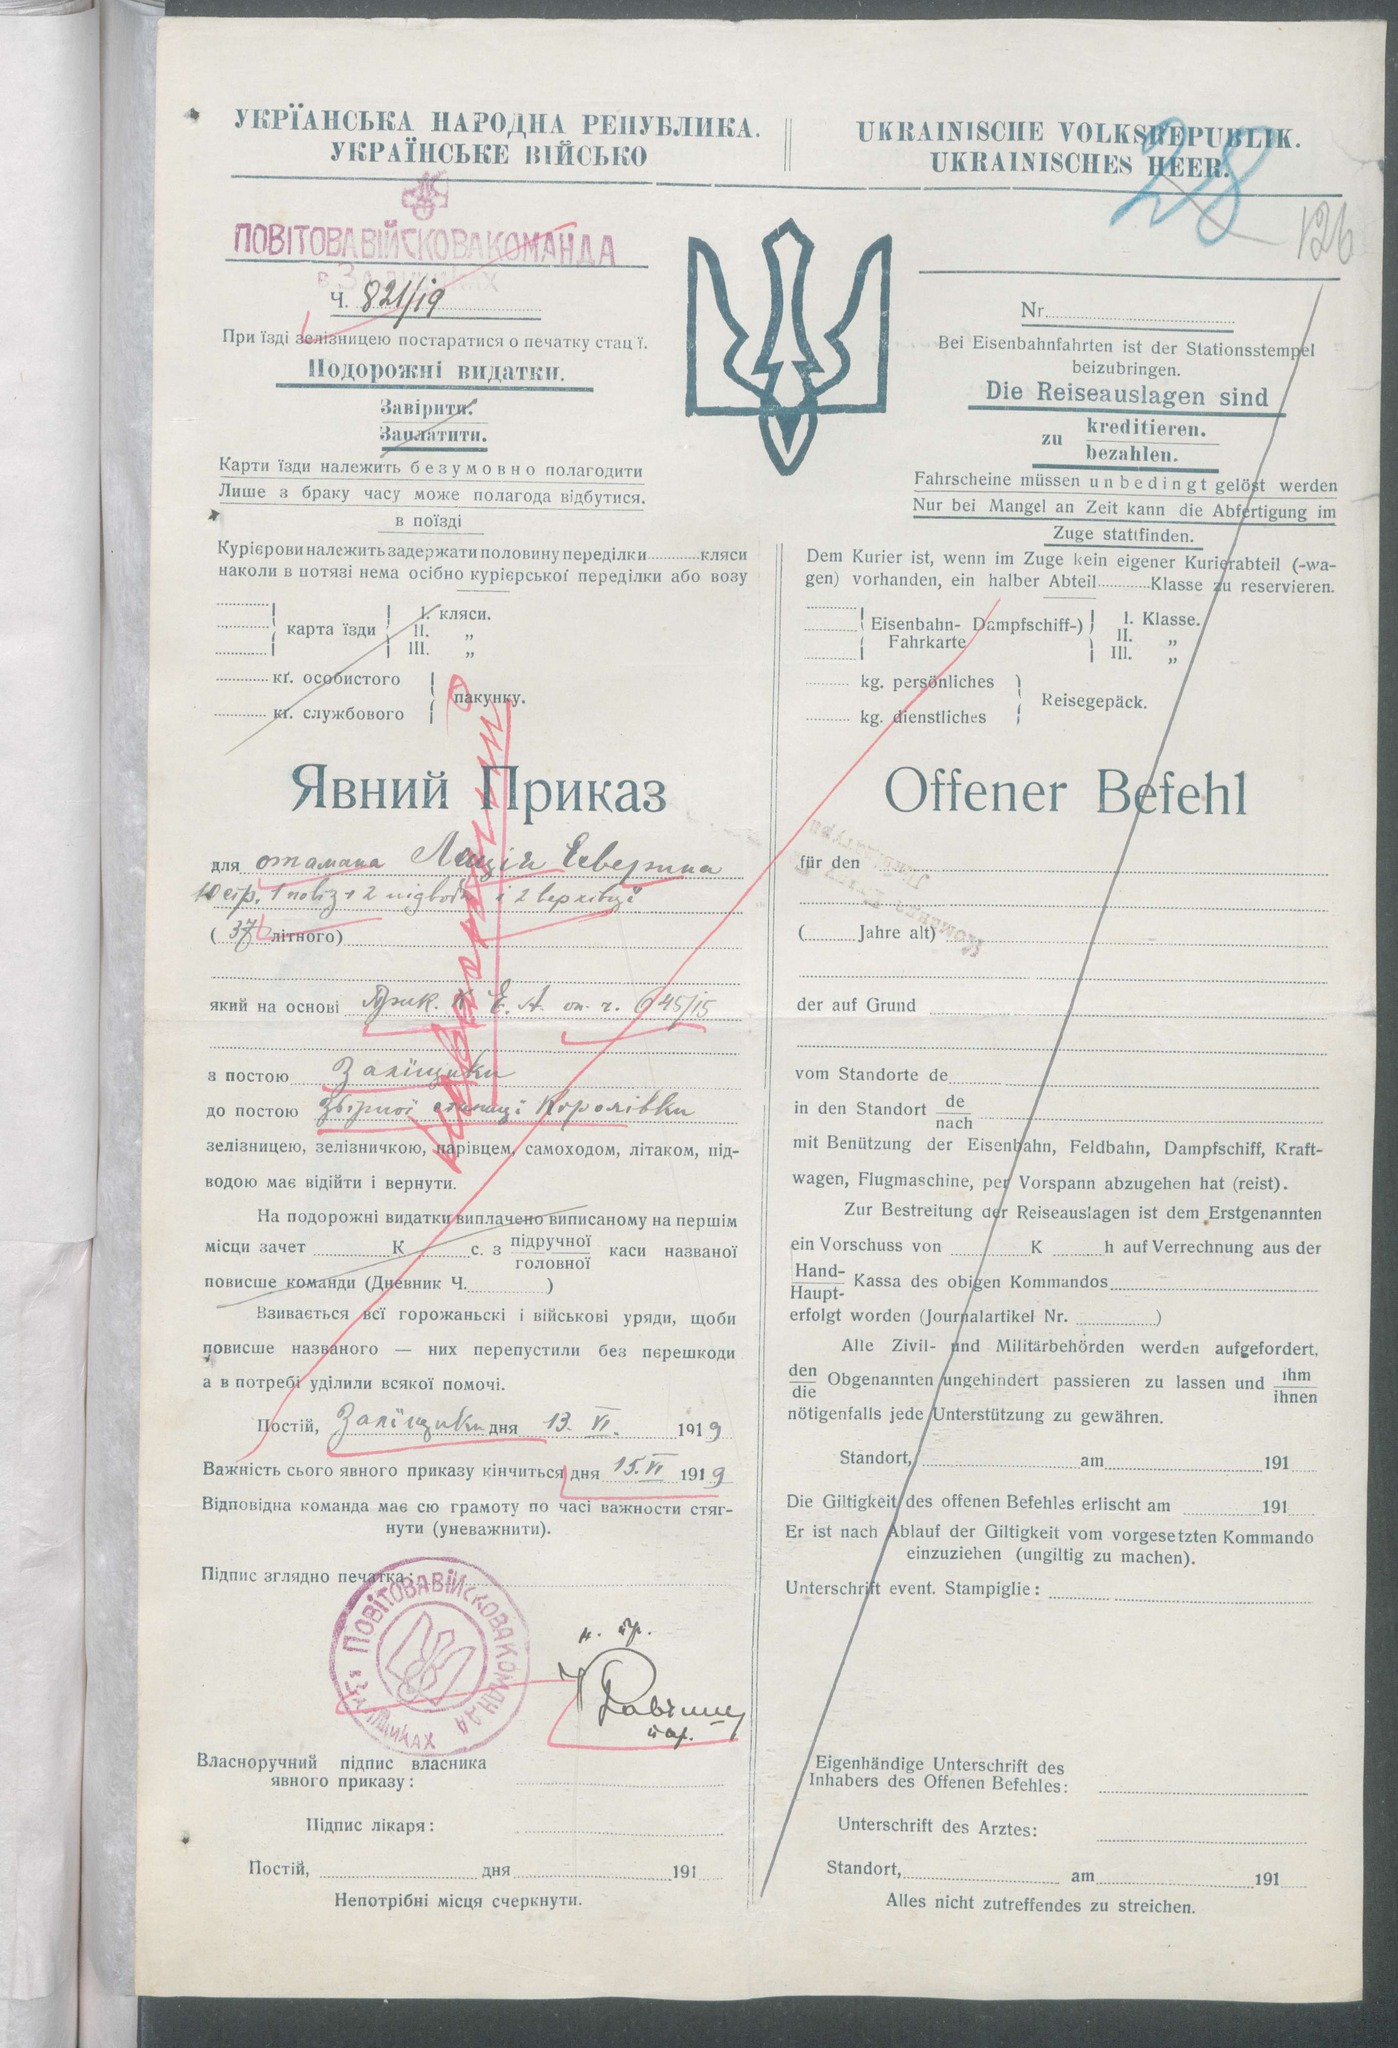 УКРЇАНСЬКА НАРОДНА РЕПУБЛИКА.
УКРАЇНСЬКЕ ВІЙСЬКО
ПОВІТОВА ВІЙСКОВА КОМАНДА
в Заліщиках
Ч. 821/19
При їзді зелізницею постаратися о печатку стації.
Подорожні видатки.
Завірити.
Заплатити.
Карти їзди належить безумовно полагодити
Лише з браку часу може полагода відбутися.
в поїзді
Курієрови належить задержати половину переділки ......... кляси
наколи в потязі нема осібно курієрської переділки або возу
карта їзди
I. кляси.
II. „
III. „
кґ. особистого
кґ. службового
пакунку.
Явний Приказ
для отамана Ляція Северина
10 стр. 1 повіз + 2 підводи і 2 верхівці
( 37 літного)
який на основі Прик. К Е. А. оп. ч. 645/15
з постою Заліщики
до постою Збірної станиці Королівки
зелізницею, зелізничкою, парівцем, самоходом, літаком, під-
водою має відійти і вернути.
На подорожні видатки виплачено виписаному на першім
місци зачет ......... К ......... с. з підручної
головної каси названої
повисше команди (Дневник Ч. ......... )
Взивається всї горожаньскі і військові уряди, щоби
повисше названого — них перепустили без перешкоди
а в потребі уділили всякої помочі.
Постій, Заліщики дня 13. VI. 1919
Важність сього явного приказу кінчиться дня 15. VI 1919
Відповідна команда має сю грамоту по часі важности стяг-
нути (уневажнити).
Підпис зглядно печатка:
ПОВІТОВА ВІЙСКОВА КОМАНДА
в Заліщиках
Власноручний підпис власника
явного приказу:
Підпис лікаря:
Постій, ......... дня ......... 191
Непотрібні місця счеркнути.
UKRAINISCHE VOLKSREPUBLIK.
UKRAINISCHES HEER.
28
126
Nr.
Bei Eisenbahnfahrten ist der Stationsstempel
beizubringen.
Die Reiseauslagen sind
zu kreditieren.
bezahlen.
Fahrscheine müssen unbedingt gelöst werden
Nur bei Mangel an Zeit kann die Abfertigung im
Zuge stattfinden.
Dem Kurier ist, wenn im Zuge kein eigener Kurierabteil (-wa-
gen) vorhanden, ein halber Abteil ......... Klasse zu reservieren.
Eisenbahn- Dampfschiff-)
Fahrkarte
I. Klasse.
II. „
III. „
kg. persönliches
kg. dienstliches
Reisegepäck.
Offener Befehl
für den
( ......... Jahre alt)
der auf Grund
vom Standorte de
in den Standort de
nach
mit Benützung der Eisenbahn, Feldbahn, Dampfschiff, Kraft-
wagen, Flugmaschine, per Vorspann abzugehen hat (reist).
Zur Bestreitung der Reiseauslagen ist dem Erstgenannten
ein Vorschuss von ......... K ......... h auf Verrechnung aus der
Hand-
Haupt- Kassa des obigen Kommandos
erfolgt worden (Journalartikel Nr. ......... )
Alle Zivil- und Militärbehörden werden aufgefordert,
den
die Obgenannten ungehindert passieren zu lassen und ihm
ihnen
nötigenfalls jede Unterstützung zu gewähren.
Standort, ......... am ......... 191
Die Giltigkeit des offenen Befehles erlischt am ......... 191
Er ist nach Ablauf der Giltigkeit vom vorgesetzten Kommando
einzuziehen (ungiltig zu machen).
Unterschrift event. Stampiglie:
Eigenhändige Unterschrift des
Inhabers des Offenen Befehles:
Unterschrift des Arztes:
Standort, ......... am ......... 191
Alles nicht zutreffendes zu streichen.